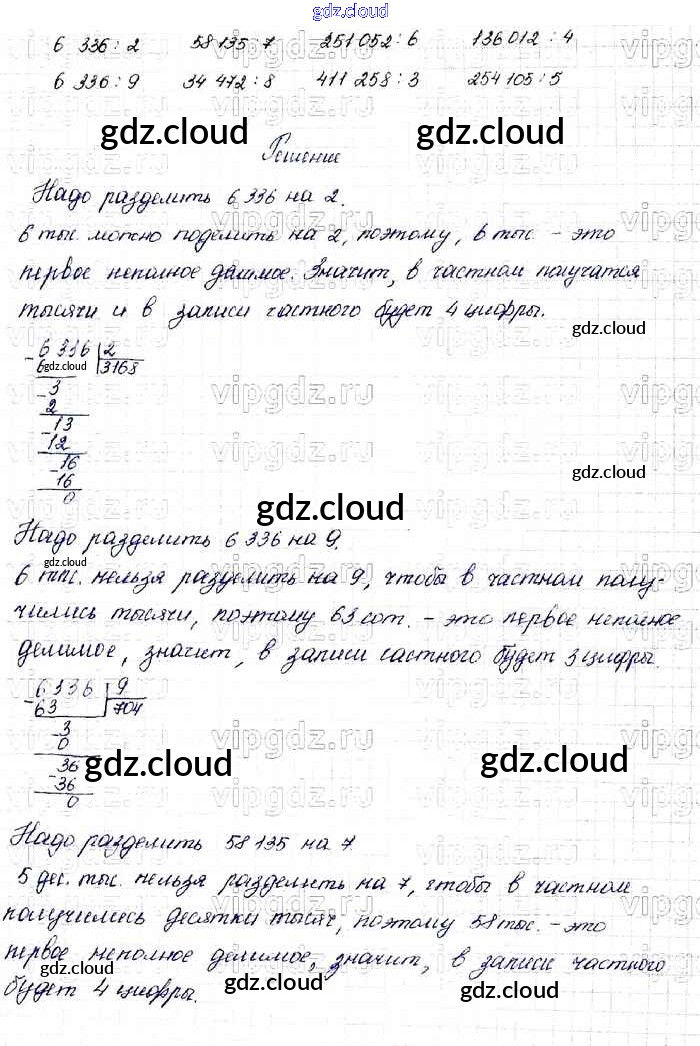 gdz.cloud
6 336 : 2   58 135 : 7   251 052 : 6   136 012 : 4
6 336 : 9   34 472 : 8   411 258 : 3   254 105 : 5
gdz.cloud gdz.cloud gdz.cloud
Решение
Надо разделить 6 336 на 2.
6 тыс. можно поделить на 2, поэтому, 6 тыс. - это
первое неполное делимое. Значит, в частном получатся
тысячи и в записи частного будет 4 цифры.
gdz.cloud
- 6 336 | 2
6 gdz.cloud 3168
- 3
2
- 13
12
- 16
16
0
gdz.cloud
gdz.cloud
Надо разделить 6 336 на 9.
gdz.cloud
6 тыс. нельзя разделить на 9, чтобы в частном полу-
чились тысячи, поэтому 63 сот. - это первое неполное
делимое, значит, в записи частного будет 3 цифры.
- 6 336 | 9
63 704
- 3
0
36
- 36
0
gdz.cloud gdz.cloud
Надо разделить 58 135 на 7.
5 дес. тыс. нельзя разделить на 7, чтобы в частном
получились десятки тысяч, поэтому 58 тыс. - это
первое неполное делимое, значит, в записи частного
gdz.cloud
будет 4 цифры.
gdz.cloud gdz.cloud
vipgdz.ru